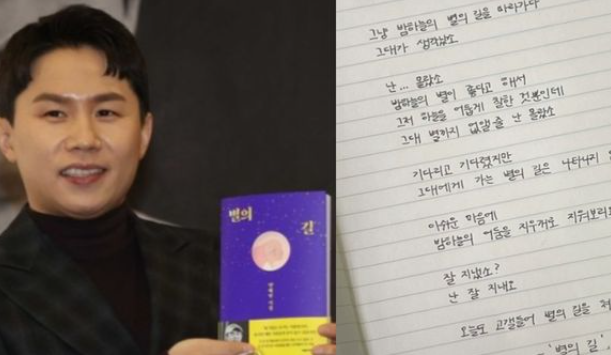 별의 길
그냥 밤하늘의 별의 길을 따라가다
그대가 생각났소
난... 몰랐소
밤하늘의 별이 좋다고 해서
그저 하늘을 어둡게 칠한 것뿐인데
그대 별까지 없앨 줄 난 몰랐소
기다리고 기다렸지만
그대에게 가는 별의 길은 나타나지
아쉬운 마음에
밤하늘의 어둠을 지우개로
잘 지냈소?
난 잘 지내오
오늘도 고개들어 별의 길을
'별의 길'